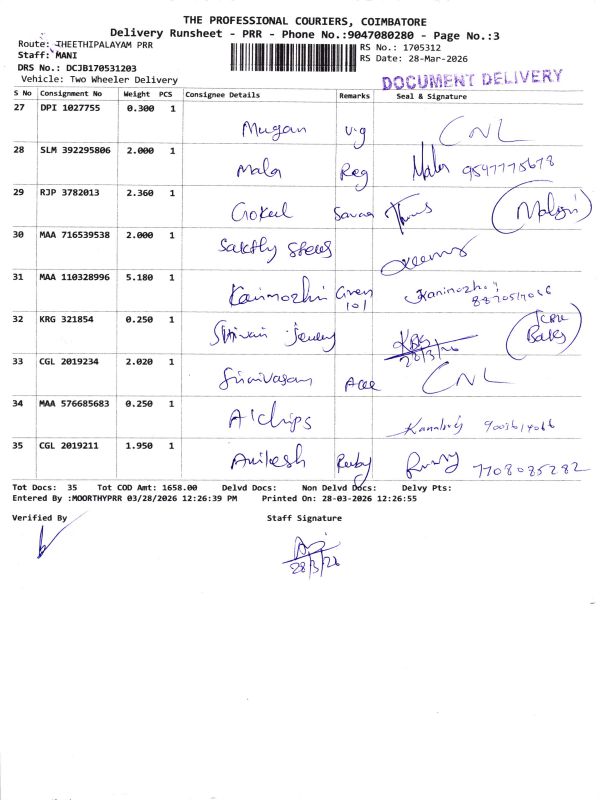 THE PROFESSIONAL COURIERS, COIMBATORE
Delivery Runsheet - PRR - Phone No.:9047080280 - Page No.:3
Route: THEETHIPALAYAM PRR
RS No.: 1705312
Staff: MANI
RS Date: 28-Mar-2026
DRS No.: DCJB170531203
DOCUMENT DELIVERY
Vehicle: Two Wheeler Delivery
S No Consignment No Weight PCS Consignee Details Remarks Seal & Signature
27 DPI 1027755 0.300 1
Mugan V.g CNL
28 SLM 392295806 2.000 1
Mala Reg Mala 9547775678
29 RJP 3782013 2.360 1
Gokul
30 MAA 716539538 2.000 1
Sakthy Steels
31 MAA 110328996 5.180 1
Kanimozhi Green 101 Kanimozhi
32 KRG 321854 0.250 1
28/3/26
33 CGL 2019234 2.020 1
Srinivasan Ace CNL
34 MAA 576685683 0.250 1
A1 Chips
35 CGL 2019211 1.950 1
Anilesh Ruby 7708085282
Tot Docs: 35 Tot COD Amt: 1658.00 Delvd Docs: Non Delvd Docs: Delvy Pts:
Entered By :MOORTHYPRR 03/28/2026 12:26:39 PM Printed On: 28-03-2026 12:26:55
Verified By Staff Signature
28/3/26